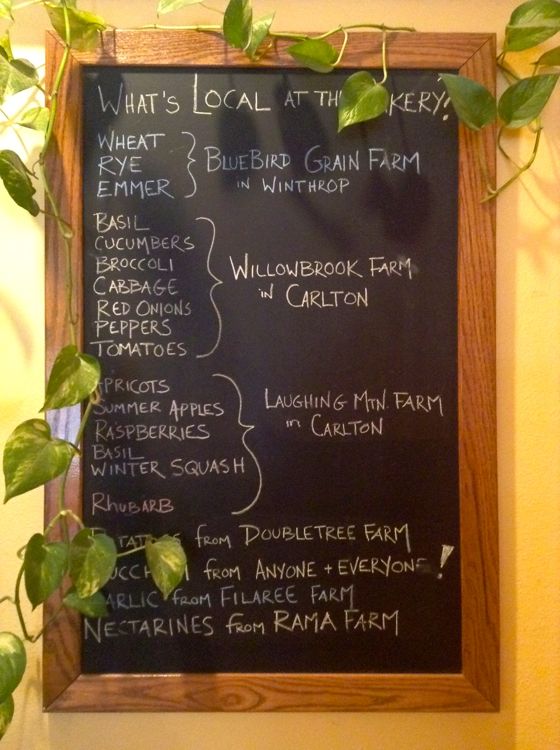 What's Local at the Bakery!
Wheat
Rye
Emmer
BlueBird Grain Farm
in Winthrop
Basil
Cucumbers
Broccoli
Cabbage
Red Onions
Peppers
Tomatoes
Willowbrook Farm
in Carlton
Apricots
Summer Apples
Raspberries
Basil
Winter Squash
Rhubarb
Laughing Mtn. Farm
in Carlton
Potatoes from Doubletree Farm
Zucchini from Anyone + Everyone!
Garlic from Filaree Farm
Nectarines from Rama Farm